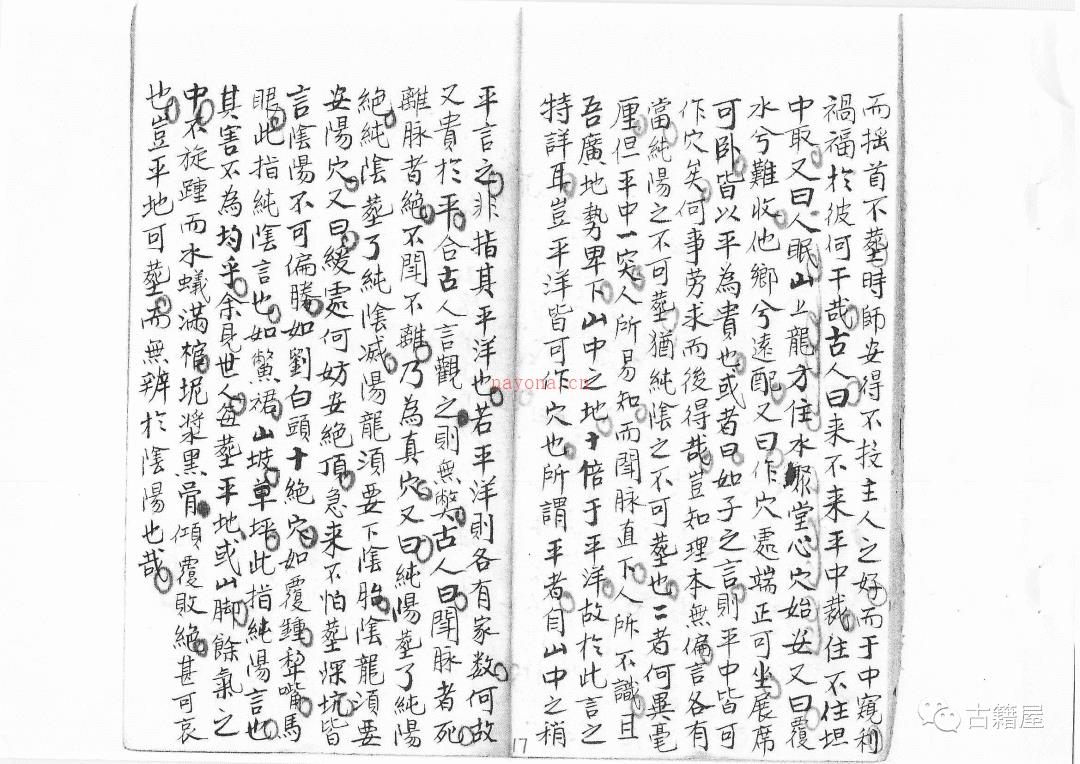 而摇首不塟時師安得不投主人之好而于中窺利
禍福於彼何干哉古人曰来不来平中裁住不住坦
中取又曰人眠山上龍方住水聚堂心穴始安又曰覆
水兮難收他鄉兮遠配又曰作穴處端正可坐展席
可卧皆以平為貴也或者曰如子之言則平中皆可
作穴矣何事劳求而後得哉豈知理本無偏言各有
當純陽之不可塟猶純陰之不可塟也二者何異毫
厘但平中一突人所易知而闘脉直下人所不識且
吾廣地勢卑下山中之地十倍于平洋故於此言之
特詳耳豈平洋皆可作穴也所謂平者自山中之稍
17
平言之非指其平洋也若平洋則各有家数何故
又貴於平合古人言觀之則無獘古人曰闘脉者死
離脉者絶不闘不離乃為真穴又曰純陽塟了純陽
絶純陰塟了純陰滅陽龍須要下陰胎陰龍須要
安陽穴又曰緩處何妨安絶頂急来不怕塟深坑皆
言陰陽不可偏勝如劉白頭十絶穴如覆鍾犁嘴馬
眼此指純陰言也如鱉裙山坡单坪此指純陽言也
其害不為均乎余見世人每塟平地或山脚餘氣之
中不旋踵而水蟻滿棺坭漿黑骨傾覆敗絶甚可哀
也豈平地可塟而無辨於陰陽也哉
nayona.cn
古籍屋